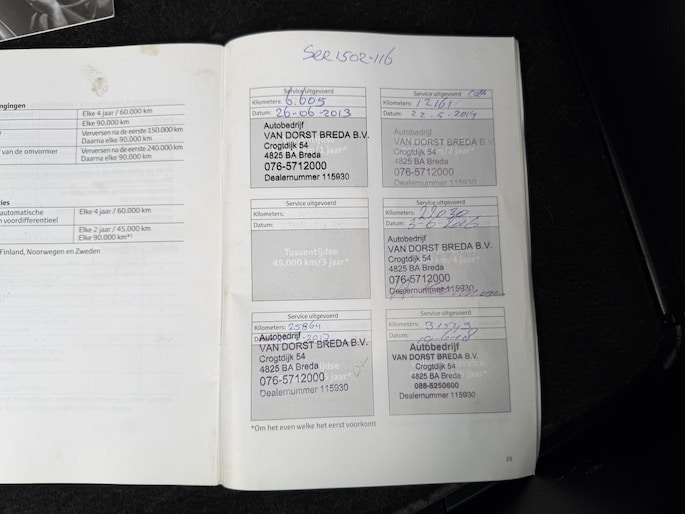 ngingen
Elke 4 jaar / 60.000 km
Elke 90.000 km
Verversen na de eerste 150.000 km
Daarna elke 90.000 km
van de omvormer
Verversen na de eerste 240.000 km
Daarna elke 90.000 km
ies
automatische
n voordifferentieel
Elke 4 jaar / 60.000 km
Elke 2 jaar / 45.000 km
Elke 90.000 km*¹
Finland, Noorwegen en Zweden
Service uitgevoerd
Kilometers: 6.605
Datum: 26-06-2013
Autobedrijf
VAN DORST BREDA B.V.
Crogtdijk 54
4825 BA Breda
076-5712000
Dealernummer 115930
Service uitgevoerd
Kilometers: 12161
Datum: 22-5-2014
Autobedrijf
VAN DORST BREDA B.V.
Crogtdijk 54
4825 BA Breda
076-5712000
Dealernummer 115930
Service uitgevoerd
Kilometers:
Datum:
Tussentijdse
45.000 km/3 jaar*
Service uitgevoerd
Kilometers:
Datum:
Autobedrijf
VAN DORST BREDA B.V.
Crogtdijk 54
4825 BA Breda
076-5712000
Dealernummer 115930
Service uitgevoerd
Kilometers: 25864
Autobedrijf
VAN DORST BREDA B.V.
Crogtdijk 54
4825 BA Breda
076-5712000
Dealernummer 115930
Service uitgevoerd
Kilometers: 31545
Datum:
Autobedrijf
VAN DORST BREDA B.V.
Crogtdijk 54
4825 BA Breda
088-5250600
Dealernummer 115930
*Om het even welke het eerst voorkomt
25